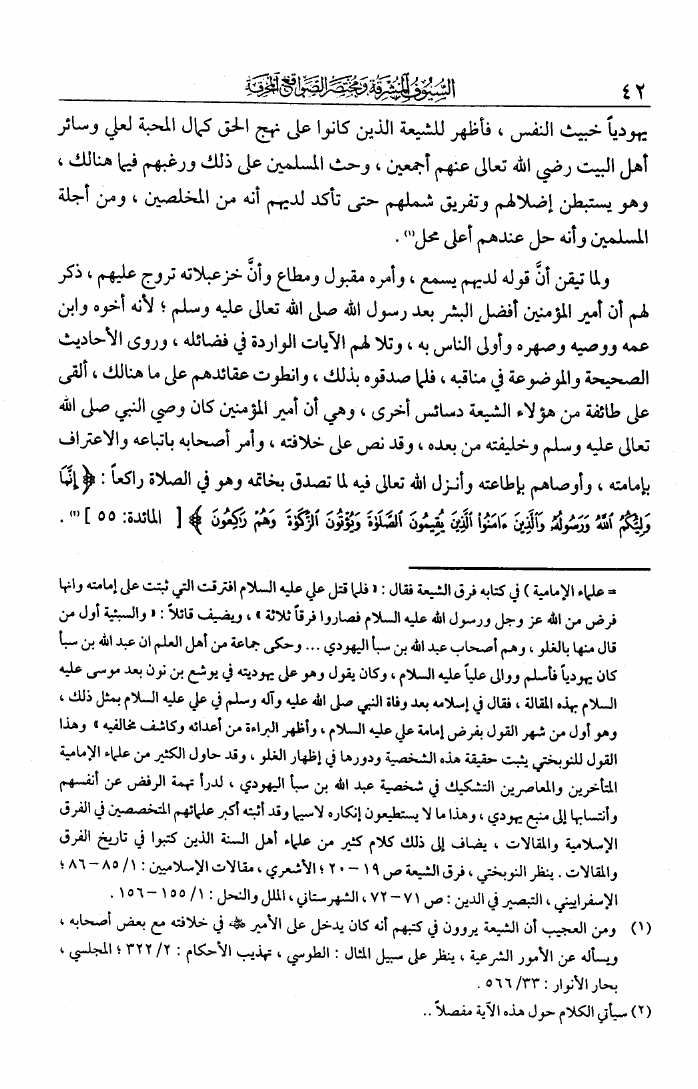 ٤٢
السيوف المشرقة ومختصر الصواقع المحرقة
يهودياً خبيث النفس ، فأظهر للشيعة الذين كانوا على نهج الحق كمال المحبة لعلي وسائر
أهل البيت رضي الله تعالى عنهم أجمعين ، وحث المسلمين على ذلك ورغبهم فيما هنالك ،
وهو يستبطن إضلالهم وتفريق شملهم حتى تأكد لديهم أنه من المخلصين ، ومن أجلة
المسلمين وأنه حل عندهم أعلى محل(١) .
ولما تيقن أنَّ قوله لديهم يسمع ، وأمره مقبول ومطاع وأنَّ خزعبلاته تروج عليهم ، ذكر
لهم أن أمير المؤمنين أفضل البشر بعد رسول الله صلى الله تعالى عليه وسلم ؛ لأنه أخوه وابن
عمه ووصيه وصهره وأولى الناس به ، وتلا لهم الآيات الواردة في فضائله ، وروى الأحاديث
الصحيحة والموضوعة في مناقبه ، فلما صدقوه بذلك ، وانطوت عقائدهم على ما هنالك ، ألقى
على طائفة من هؤلاء الشيعة دسائس أخرى ، وهي أن أمير المؤمنين كان وصي النبي صلى الله
تعالى عليه وسلم وخليفته من بعده ، وقد نص على خلافته ، وأمر أصحابه باتباعه والاعتراف
بإمامته ، وأوصاهم بإطاعته وأنـزل الله تعالى فيه لما تصدق بخاتمه وهو في الصلاة راكعاً : ﴿ إِنَّمَا
وَلِيُّكُمُ اللَّهُ وَرَسُولُهُ وَالَّذِينَ ءَامَنُوا الَّذِينَ يُقِيمُونَ الصَّلَوٰةَ وَيُؤْتُونَ الزَّكَوٰةَ وَهُمْ رَاكِعُونَ ﴾ [ المائدة: ٥٥ ](٢) .
= علماء الإمامية ) في كتابه فرق الشيعة فقال : « فلما قتل علي عليه السلام افترقت التي ثبتت على إمامته وانها
فرض من الله عز وجل ورسول الله عليه السلام فصاروا فرقاً ثلاثة » ، ويضيف قائلاً : « والسبئية أول من
قال منها بالغلو ، وهم أصحاب عبد الله بن سبأ اليهودي ... وحكى جماعة من أهل العلم ان عبد الله بن سبأ
كان يهودياً فأسلم ووالى علياً عليه السلام ، وكان يقول وهو على يهوديته في يوشع بن نون بعد موسى عليه
السلام بهذه المقالة ، فقال في إسلامه بعد وفاة النبي صلى الله عليه وآله وسلم في علي عليه السلام بمثل ذلك ،
وهو أول من شهر القول بفرض إمامة علي عليه السلام ، وأظهر البراءة من أعدائه وكاشف مخالفيه » وهذا
القول للنوبختي يثبت حقيقة هذه الشخصية ودورها في إظهار الغلو ، وقد حاول الكثير من علماء الإمامية
المتأخرين والمعاصرين التشكيك في شخصية عبد الله بن سبأ اليهودي ، لدرأ تهمة الرفض عن أنفسهم
وأنتسابها إلى منبع يهودي ، وهذا ما لا يستطيعون إنكاره لاسيما وقد أثبته أكبر علمائهم المتخصصين في الفرق
الإسلامية والمقالات ، يضاف إلى ذلك كلام كثير من علماء أهل السنة الذين كتبوا في تاريخ الفرق
والمقالات . ينظر النوبختي ، فرق الشيعة ص ١٩ – ٢٠ ؛ الأشعري ، مقالات الإسلاميين : ١/ ٨٥ – ٨٦ ؛
الإسفراييني ، التبصير في الدين : ص ٧١ – ٧٢ ، الشهرستاني ، الملل والنحل : ١/ ١٥٥ – ١٥٦ .
(١) ومن العجيب أن الشيعة يروون في كتبهم أنه كان يدخل على الأمير في خلافته مع بعض أصحابه ،
ويسأله عن الأمور الشرعية ، ينظر على سبيل المثال : الطوسي ، تهذيب الأحكام : ٢/ ٣٢٢ ؛ المجلسي ،
بحار الأنوار : ٣٣/ ٥٦٦ .
(٢) سيأتي الكلام حول هذه الآية مفصلاً ..